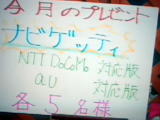 今月のプレゼント
ナビゲッティ
NTT DoCoMo 対応版
au 対応版
各5名様